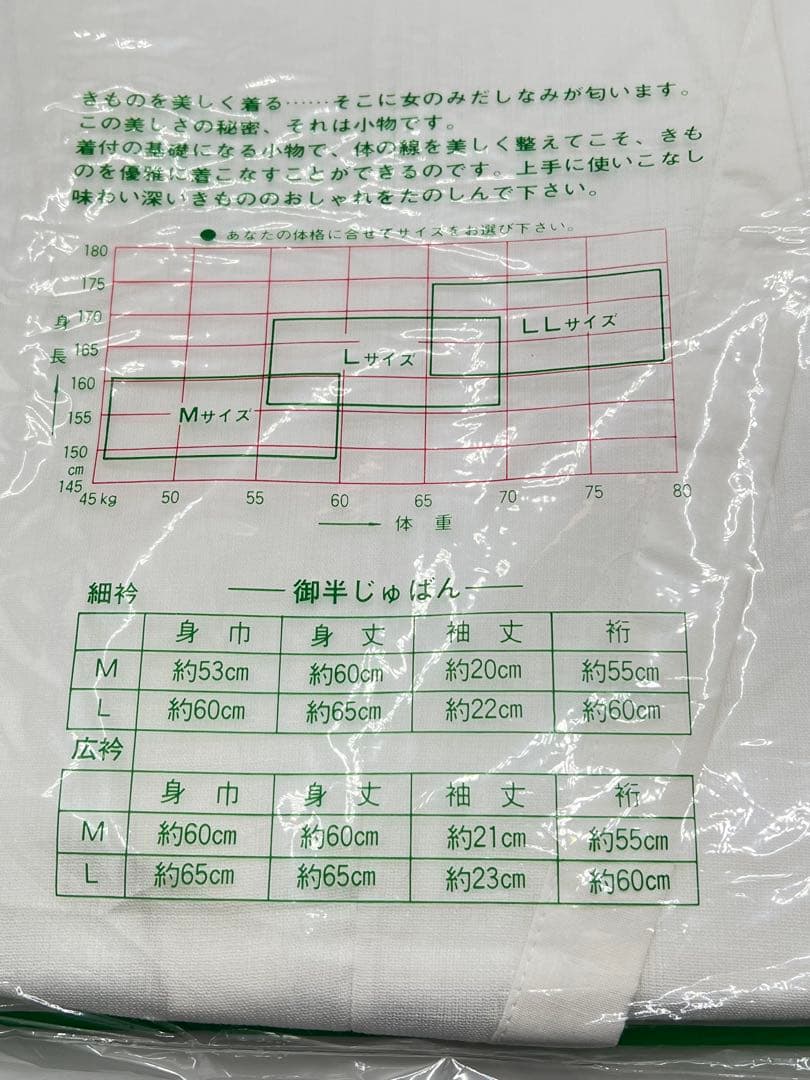 きものを美しく着る……そこに女のみだしなみが匂います。
この美しさの秘密、それは小物です。
着付の基礎になる小物で、体の線を美しく整えてこそ、きも
のを優雅に着こなすことができるのです。上手に使いこなし
味わい深いきもののおしゃれをたのしんで下さい。
●あなたの体格に合せてサイズをお選び下さい。
180
175
170
165
160
155
150
cm
145
身長
Mサイズ
Lサイズ
LLサイズ
45kg 50 55 60 65 70 75 80
体重
細衿 御半じゅばん
身巾 身丈 袖丈 裄
M 約53cm 約60cm 約20cm 約55cm
L 約60cm 約65cm 約22cm 約60cm
広衿
身巾 身丈 袖丈 裄
M 約60cm 約60cm 約21cm 約55cm
L 約65cm 約65cm 約23cm 約60cm